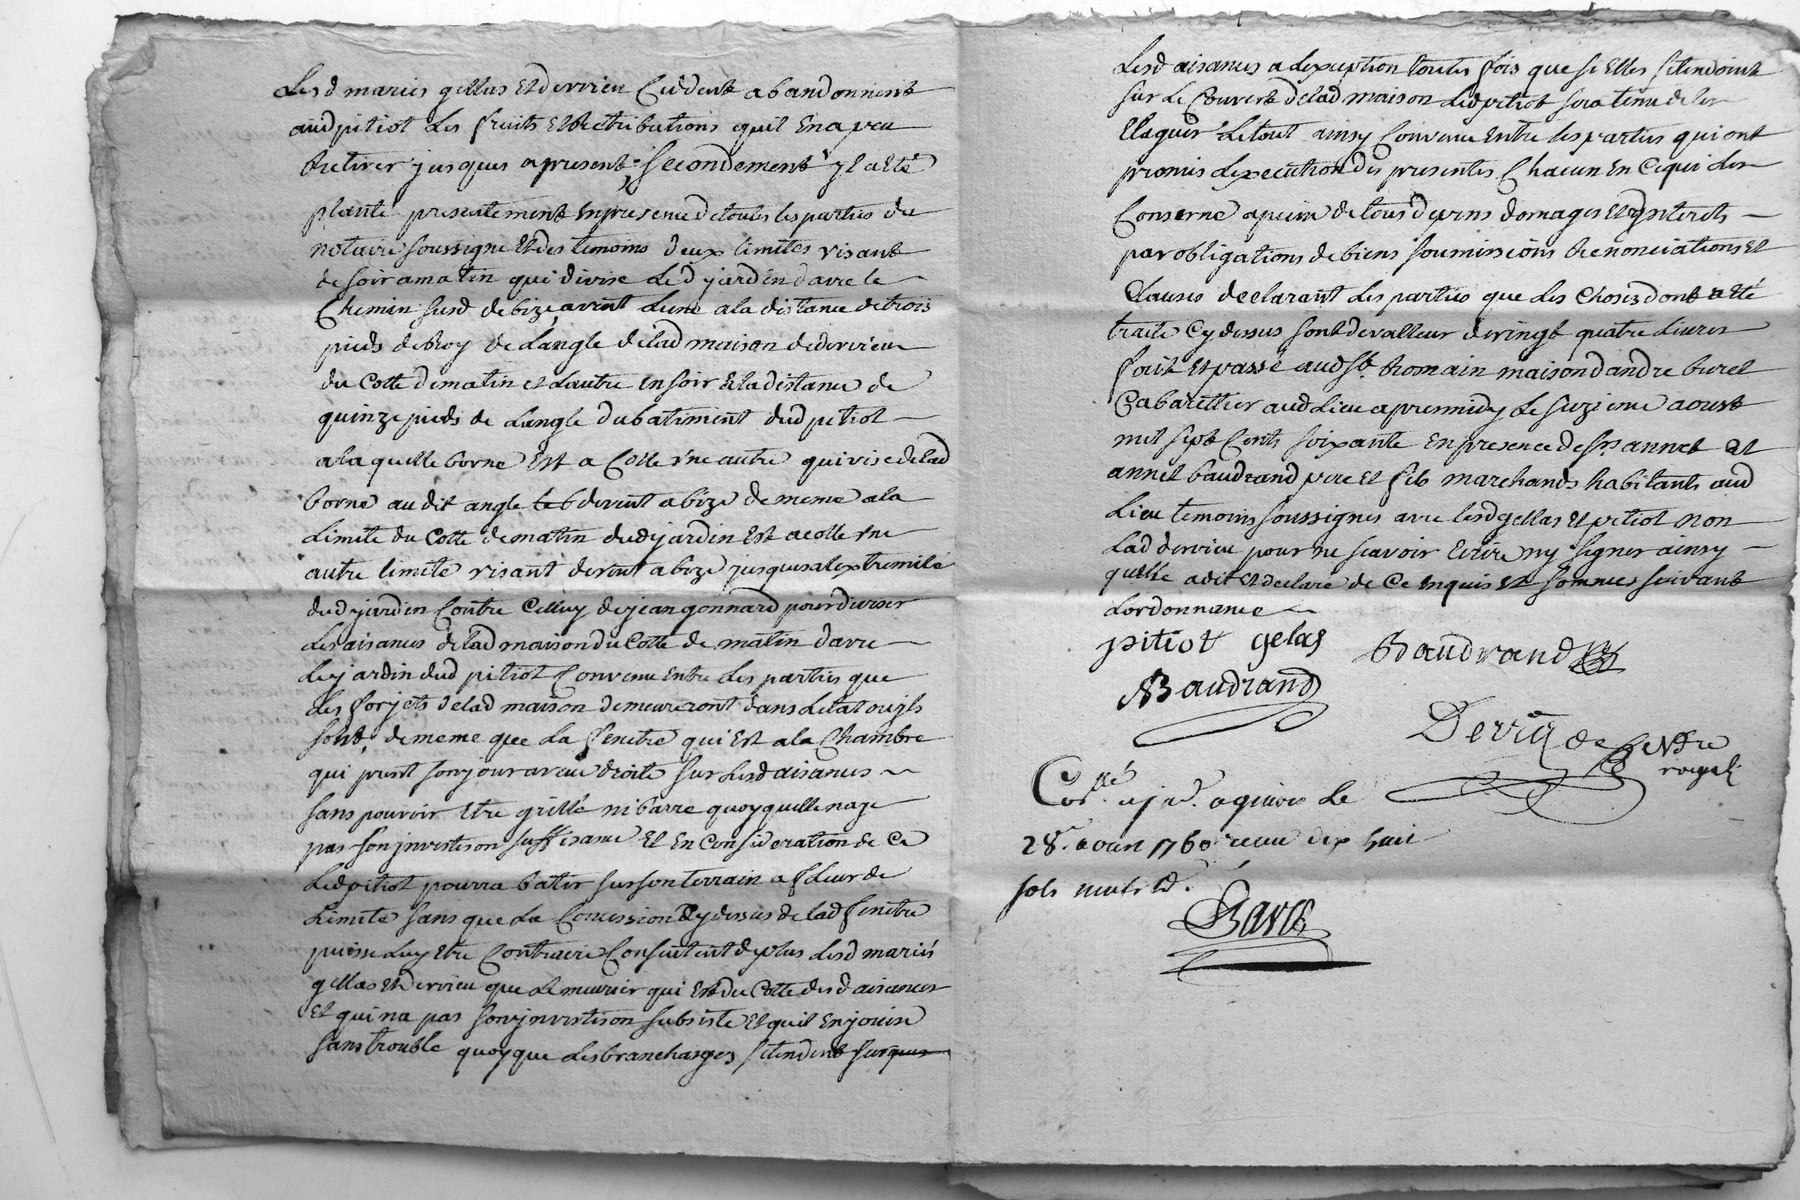 Lesd mariés gellas Et dervieu Cedent abandonnent
aud pitiot Les fruits Et Retributions quil En a peu
Retirer jusques apresent, Secondement yl a Eté
planté presentement En presence de toutes les parties du
notaire soussigné Et des temoins deux limites visant
de soir a matin qui divise Led jardin d'avec le
Chemin susd de bize avent Lune a la distance de trois
pieds de Roy de L'angle de lad maison de dervieu
du Cotté de matin et Lautre En soir Et la distance de
quinze pieds de L'angle du batiment dud pitiot
a la quelle borne Est a Colle vne autre qui vise de lad
borne au dit angle devent a bize de meme a la
Limite du Cotté de matin dud jardin Est acollé vne
autre limite visant de vent a bize jusques a lextremité
dud jardin Contre Celluy de jean gonnard pour diviser
Les aisances de lad maison du Cotté de matin d'avec
Le jardin dud pitiot Convenu Entre Les parties que
Les forjets de lad maison demeureront dans Letat ou yls
sont, de meme que La fenetre qui Est a la Chambre
qui prent son jour aveue droite sur Lesd aisances
sans pouvoir Etre grillé ni barré quoy quelle naye
pas son jnvestison suffisance Et En Consideration de Ce
Led pitiot pourra batir sur son terrain a fleur de
Limite sans que La Concession Cy dessus de lad fenetre
puisse Luy Etre Contraire Consentent de plus Lesd mariés
gellas Et dervieu que Le murier qui Est du Cotté desd aisances
Et qui na pas son jnvestison subsiste Et quil En jouisse
sans trouble quoy que Les branchages sÉtendent
Lesd aisances a L'exception toutes fois que si Elles sÉtendoint
sur Le Couvert de lad maison Led pitiot sera tenu de les
Elaguer Le tout ainsy Convenu Entre les parties qui ont
promis L'execution des presentes Chacun En Ce qui Les
Conserne a peine de tous depens domages Et ynterets
par obligations de biens soumissions Renonciations Et
Clauses declarant Les parties que Les Choses dont a Eté
traité Cy dessus sont de valleur de vingt quatre Livres
fait Et passé aud St. Romain maison d'andré burel
Cabarettier aud Lieu apres midy Le seizieme aoust
mil sept Cents soixante En presence de Srs. annet Et
annet baudrand pere Et fils marchands habitants aud
Lieu temoins soussignes avec lesd gellas Et pitiot non
Lad dervieu pour ne scavoir Ecrire ny signer ainsy
quelle a dit et declaré de Ce Enquis Et sommés suivant
Lordonnance
pitiot gelas Baudrand
ABaudrand
Con.lé a givors Le
28e. aoust 1760 receu dix huit
sols